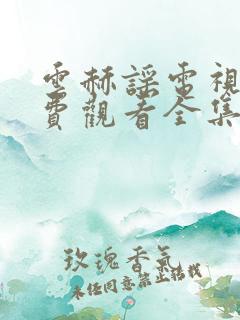 雲赫謡電視
費觀看全集
玫瑰香氣
未经同意禁止搭我